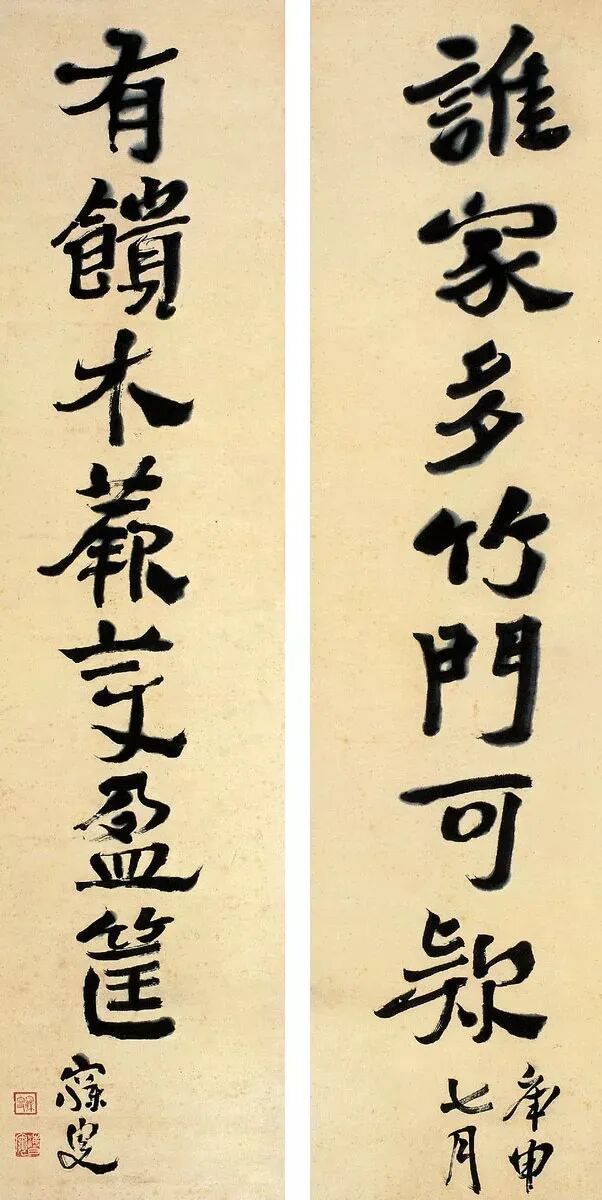 誰家多竹門可款
庚申
七月
有饋木蕨盈筐
寐叟